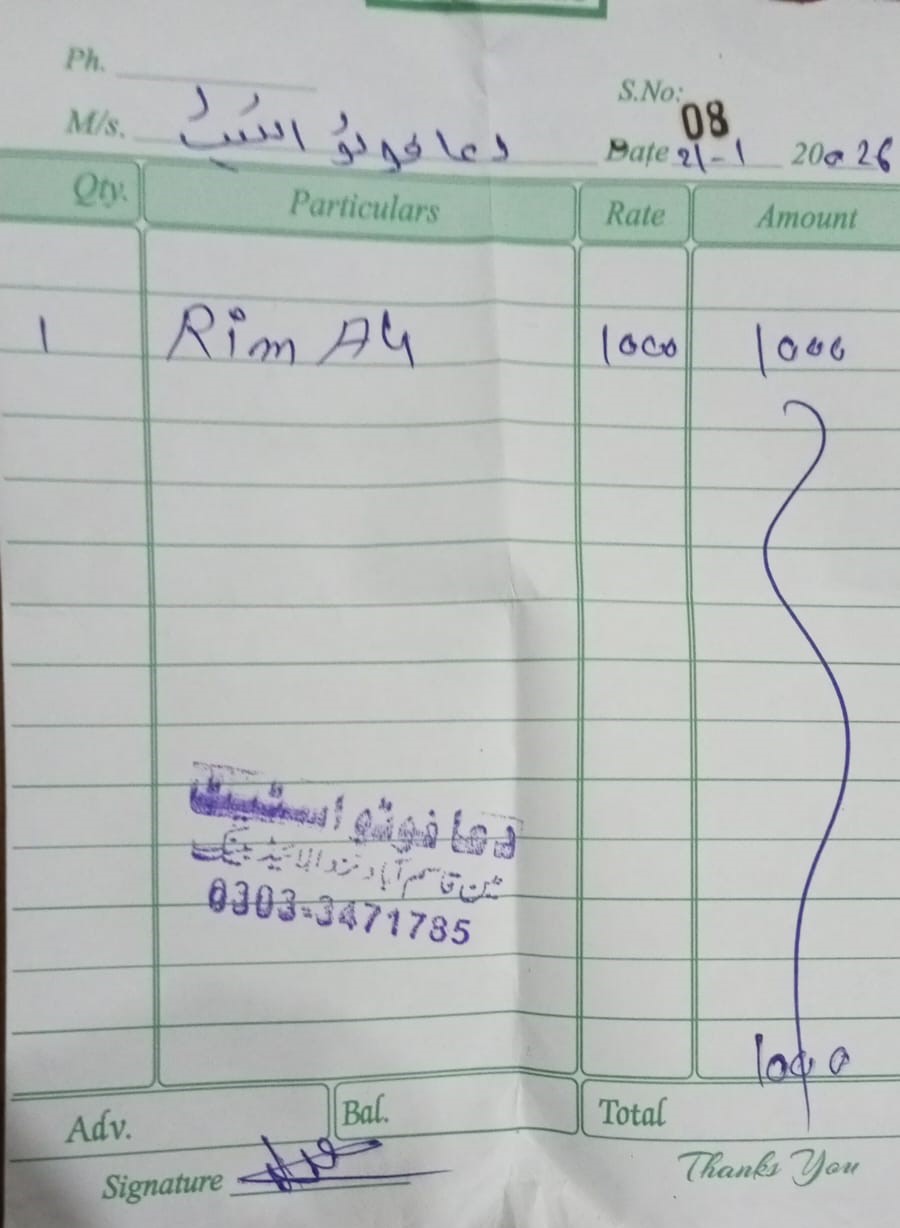 Ph.
S.No: 08
M/s. دعا فوٹو اسٹیٹ
Date 21-1 2026
Qty. Particulars Rate Amount
1 Rim A4 1000 1000
دعا فوٹو اسٹیٹ
مین قاسم آباد
0303-3471785
1000
Adv. Bal. Total
Signature
Thanks You